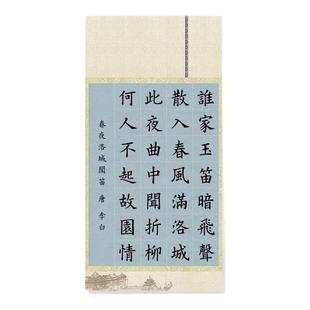 誰家玉笛暗飛聲
散入春風滿洛城
此夜曲中聞折柳
何人不起故園情
春夜洛城聞笛 唐 李白